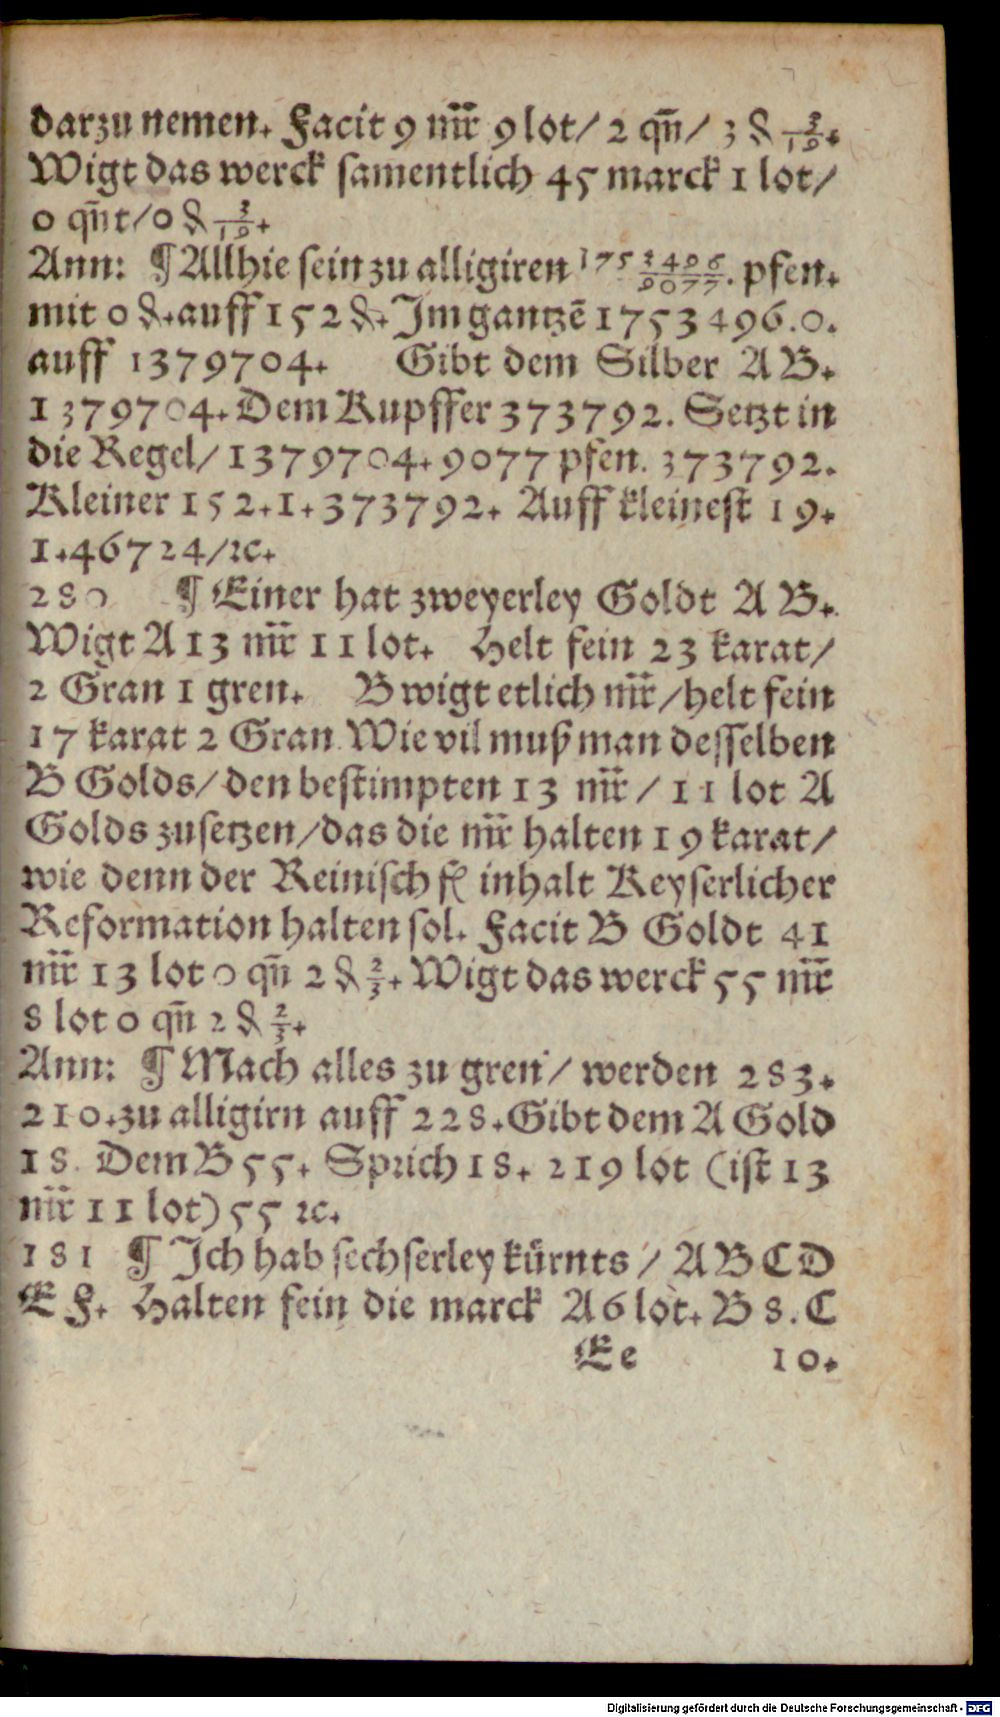 darzu nemen. Facit 9 mr̃ 9 lot/ 2 qñ/ 3 ₰ 3/19.
Wigt das werck samentlich 45 marck 1 lot/
0 qñt/0 ₰ 3/19.
Ann: ¶ Allhie sein zu alligiren 175 3496/9077. pfen.
mit 0 ₰. auff 152 ₰. Im gantzē 1753496.0.
auff 1379704. Gibt dem Silber A B.
1379704. Dem Kupffer 373792. Setzt in
die Regel/ 1379704. 9077 pfen. 373792.
Kleiner 152.1.373792. Auff kleinest 19.
1.46724/ꝛc.
280 ¶ Einer hat zweyerley Goldt A B.
Wigt A 13 mr̃ 11 lot. Helt fein 23 karat/
2 Gran 1 gren. B wigt etlich mr̃/helt fein
17 karat 2 Gran Wie vil muß man desselben
B Golds/den bestimpten 13 mr̃/ 11 lot A
Golds zusetzen/das die mr̃ halten 19 karat/
wie denn der Reinisch fl inhalt Keyserlicher
Reformation halten sol. Facit B Goldt 41
mr̃ 13 lot 0 qñ 2 ₰ 2/3. Wigt das werck 55 mr̃
8 lot 0 qñ 2 ₰ 2/3.
Ann: ¶ Mach alles zu gren/ werden 283.
210.zu alligirn auff 228. Gibt dem A Gold
18. Dem B 55. Sprich 18. 219 lot (ist 13
mr̃ 11 lot) 55 ꝛc.
181 ¶ Ich hab sechserley kürnts/ A B C D
E F. Halten fein die marck A 6 lot. B 8. C
Ee 10.
Digitalisierung gefördert durch die Deutsche Forschungsgemeinschaft · DFG